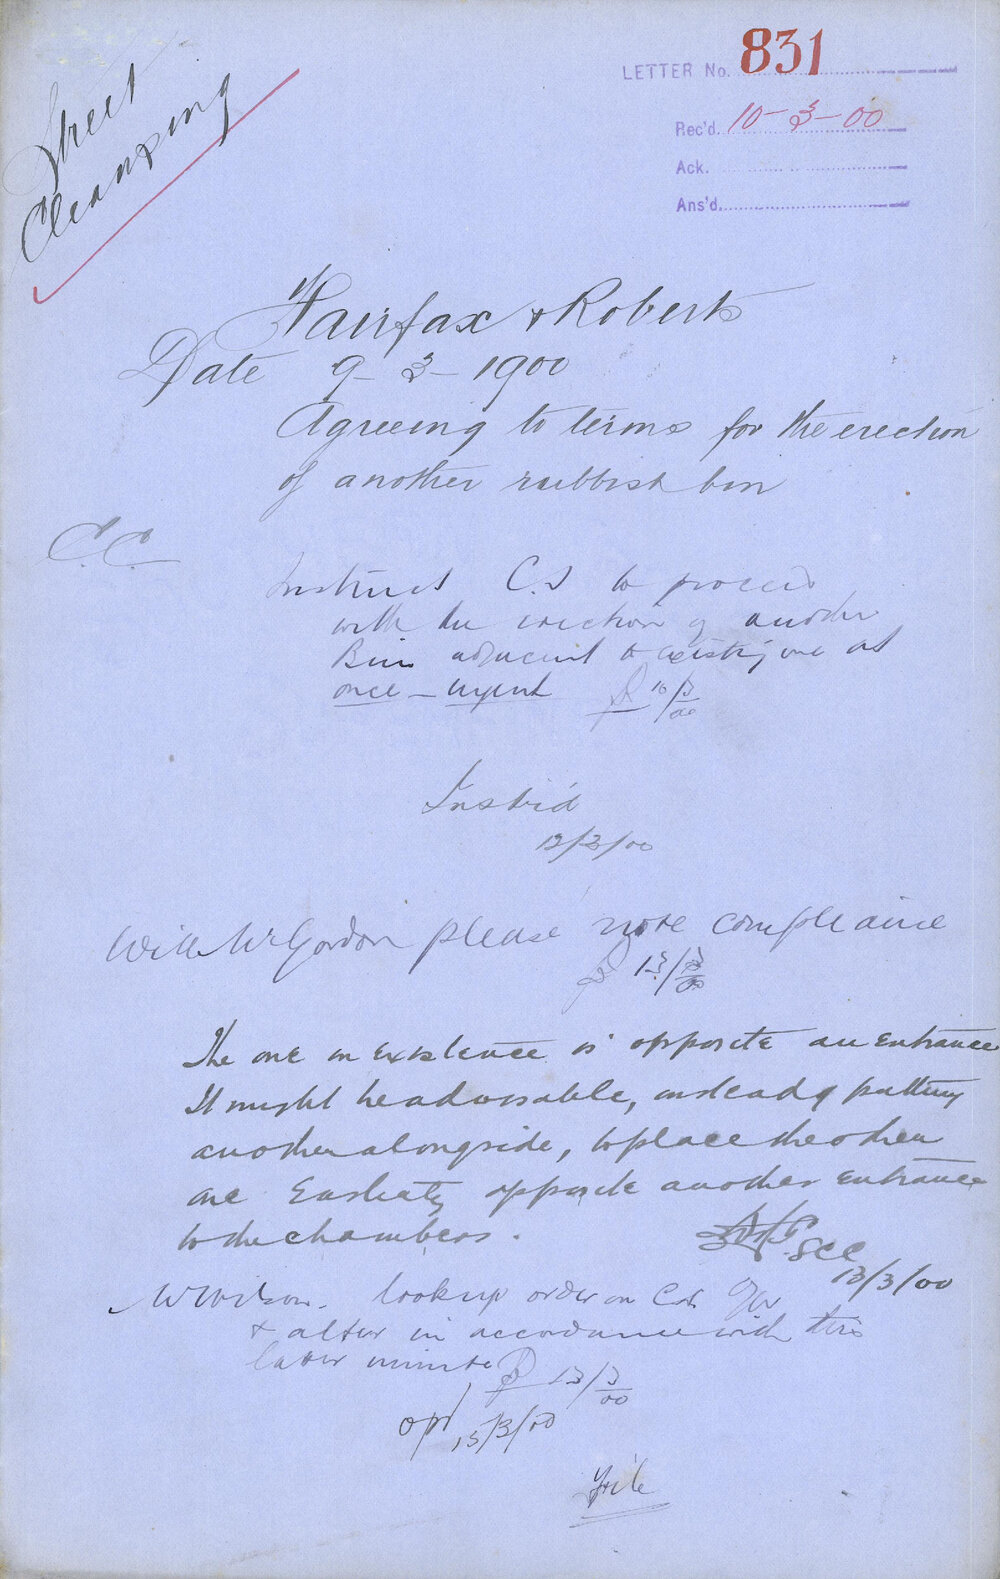 Street
Cleansing
LETTER No. 831
Rec'd. 10-3-00
Ack.
Ans'd.
Fairfax & Roberts
Date 9-3-1900
Agreeing to terms for the erection
of another rubbish bin
C.C.
Instruct C.S to proceed
with the erection of another
Bin adjacent to existing one at
once - urgent 10/3/00
Instr'd
12/3/00
Will Mr Gordon please note compliance
13/3/00
The one in existence is opposite an entrance
It might be advisable, instead of putting
another alongside, to place the other
one Easterly opposite another entrance
to the chambers.
SCC
13/3/00
Mr Wilson. look up order on C.S.
& alter in accordance with this
latter minute 13/3/00
15/3/00
File